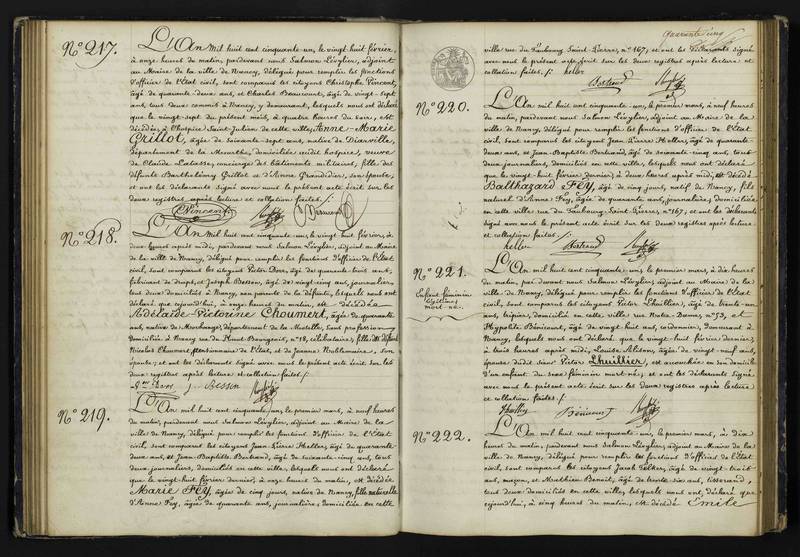 N° 217.
L'An mil huit cent cinquante un, le vingt huit février,
à onze heures du matin, pardevant nous Salmon Lévylier, adjoint
au Maire de la ville de Nancy, délégué pour remplir les fonctions
d'officier de l'état civil, sont comparus les citoyens Christophe Vincent,
âgé de quarante-deux ans, et Charles Beaucourt, âgé de vingt-sept
ans, tous deux commis à Nancy, y demeurant, lesquels nous ont déclaré
que le vingt-sept du présent mois, à quatre heures du soir, est
décédée à l'hospice Saint-Julien de cette ville, Anne-Marie
Grillot, âgée de soixante-sept ans, native de Diarville,
département de la Meurthe, domiciliée audit hospice, veuve
de Claude Latasse, concierge des bâtiments militaires, fille des
défunts Barthélémy Grillot et d'Anne Grandidier, son épouse;
et ont les déclarants signé avec nous le présent acte écrit sur les
deux registres après lecture et collation faites./.
C Vincent
N° 218.
L'An mil huit cent cinquante un, le vingt huit février, à
deux heures après midi, pardevant nous Salmon Lévylier, adjoint au Maire
de la ville de Nancy, délégué pour remplir les fonctions d'officier de l'état
civil, sont comparus les citoyens Pierre Dory, âgé de quarante-trois ans,
fabricant de draps, et Joseph Besson, âgé de vingt-cinq ans, journalier,
tous deux domiciliés à Nancy, non parents de la défunte, lesquels nous ont
déclaré que cejourd'hui, à onze heures du matin, est décédée
Adélaïde-Victorine Choumert, âgée de quarante
ans, native de Morhange, département de la Moselle, sans profession,
domiciliée à Nancy rue du Haut-Bourgeois, n° 18, célibataire, fille de défunt
Nicolas Choumert, pensionnaire de l'Etat, et de Jeanne Noblemaire, son
épouse; et ont les déclarants signé avec nous le présent acte écrit sur les
deux registres après lecture et collation faites./.
N° 219.
L'An mil huit cent cinquante un, le premier mars, à neuf heures
du matin, pardevant nous Salmon Lévylier, adjoint au Maire de la
ville de Nancy, délégué pour remplir les fonctions d'officier de l'Etat
civil, sont comparus les citoyens Jean-Pierre Heller, âgé de quarante-
deux ans, et Jean-Baptiste Bertrand, âgé de soixante-cinq ans, tous
deux journaliers, domiciliés en cette ville, lesquels nous ont déclaré
que le vingt-huit février dernier, à onze heures du matin, est décédée
Marie Fëy, âgée de cinq jours, native de Nancy, fille naturelle
d'Anne Fëy, âgée de quarante ans, journalière, domiciliée en cette
quarante cinq
ville rue du Faubourg Saint-Pierre, n° 167, et ont les déclarants signé
avec nous le présent acte écrit sur les deux registres après lecture et
collation faites./. heller
Bertrand
N° 220.
L'An mil huit cent cinquante-un, le premier mars, à neuf heures
du matin, pardevant nous Salmon Lévylier, adjoint au Maire de la
ville de Nancy, délégué pour remplir les fonctions d'officier de l'Etat
civil, sont comparus les citoyens Jean-Pierre Heller, âgé de quarante-
deux ans, et Jean-Baptiste Bertrand, âgé de soixante-cinq ans, tous
deux journaliers, domiciliés en cette ville, lesquels nous ont déclaré
que le vingt-huit février dernier, à deux heures après midi, est décédé
Balthazard Fëy, âgé de cinq jours, natif de Nancy, fils
naturel d'Anne Fëy, âgée de quarante ans, journalière, domiciliée
en cette ville rue du Faubourg Saint-Pierre, n° 167, et ont les déclarants
signé avec nous le présent acte écrit sur les deux registres après lecture
et collation faites.
heller Bertrand
N° 221.
Enfant féminin
légitime
mort-né.
L'An mil huit cent cinquante-un, le premier mars, à dix heures
du matin, pardevant nous Salmon Lévylier, adjoint au Maire de la
ville de Nancy, délégué pour remplir les fonctions d'officier de l'Etat
civil, sont comparus les citoyens Pierre Lhuillier, âgé de trente-un
ans, tripier, domicilié en cette ville rue Notre-Dame, n° 53, et
Hyppolite Bénicourt, âgé de vingt-huit ans, cordonnier, demeurant à
Nancy, lesquels nous ont déclaré que le vingt-huit février dernier,
à trois heures après midi, Louise Alston, âgée de vingt-neuf ans,
épouse dudit sieur Pierre Lhuillier, est accouchée en son domicile
d'un enfant du sexe féminin mort-né; et ont les déclarants signé
avec nous le présent acte écrit sur les deux registres après lecture
et collation faites./.
Lhuillier Bénicourt
N° 222.
L'An mil huit cent cinquante-un, le premier mars, à dix
heures du matin, pardevant nous Salmon Lévylier, adjoint au Maire de la
ville de Nancy, délégué pour remplir les fonctions d'officier de l'Etat
civil, sont comparus les citoyens Jacob Felker, âgé de vingt-trois
ans, maçon, et Matthieu Benoît, âgé de trente six ans, tisserand,
tous deux domiciliés en cette ville, lesquels nous ont déclaré que
cejourd'hui, à cinq heures du matin, est décédé Emile